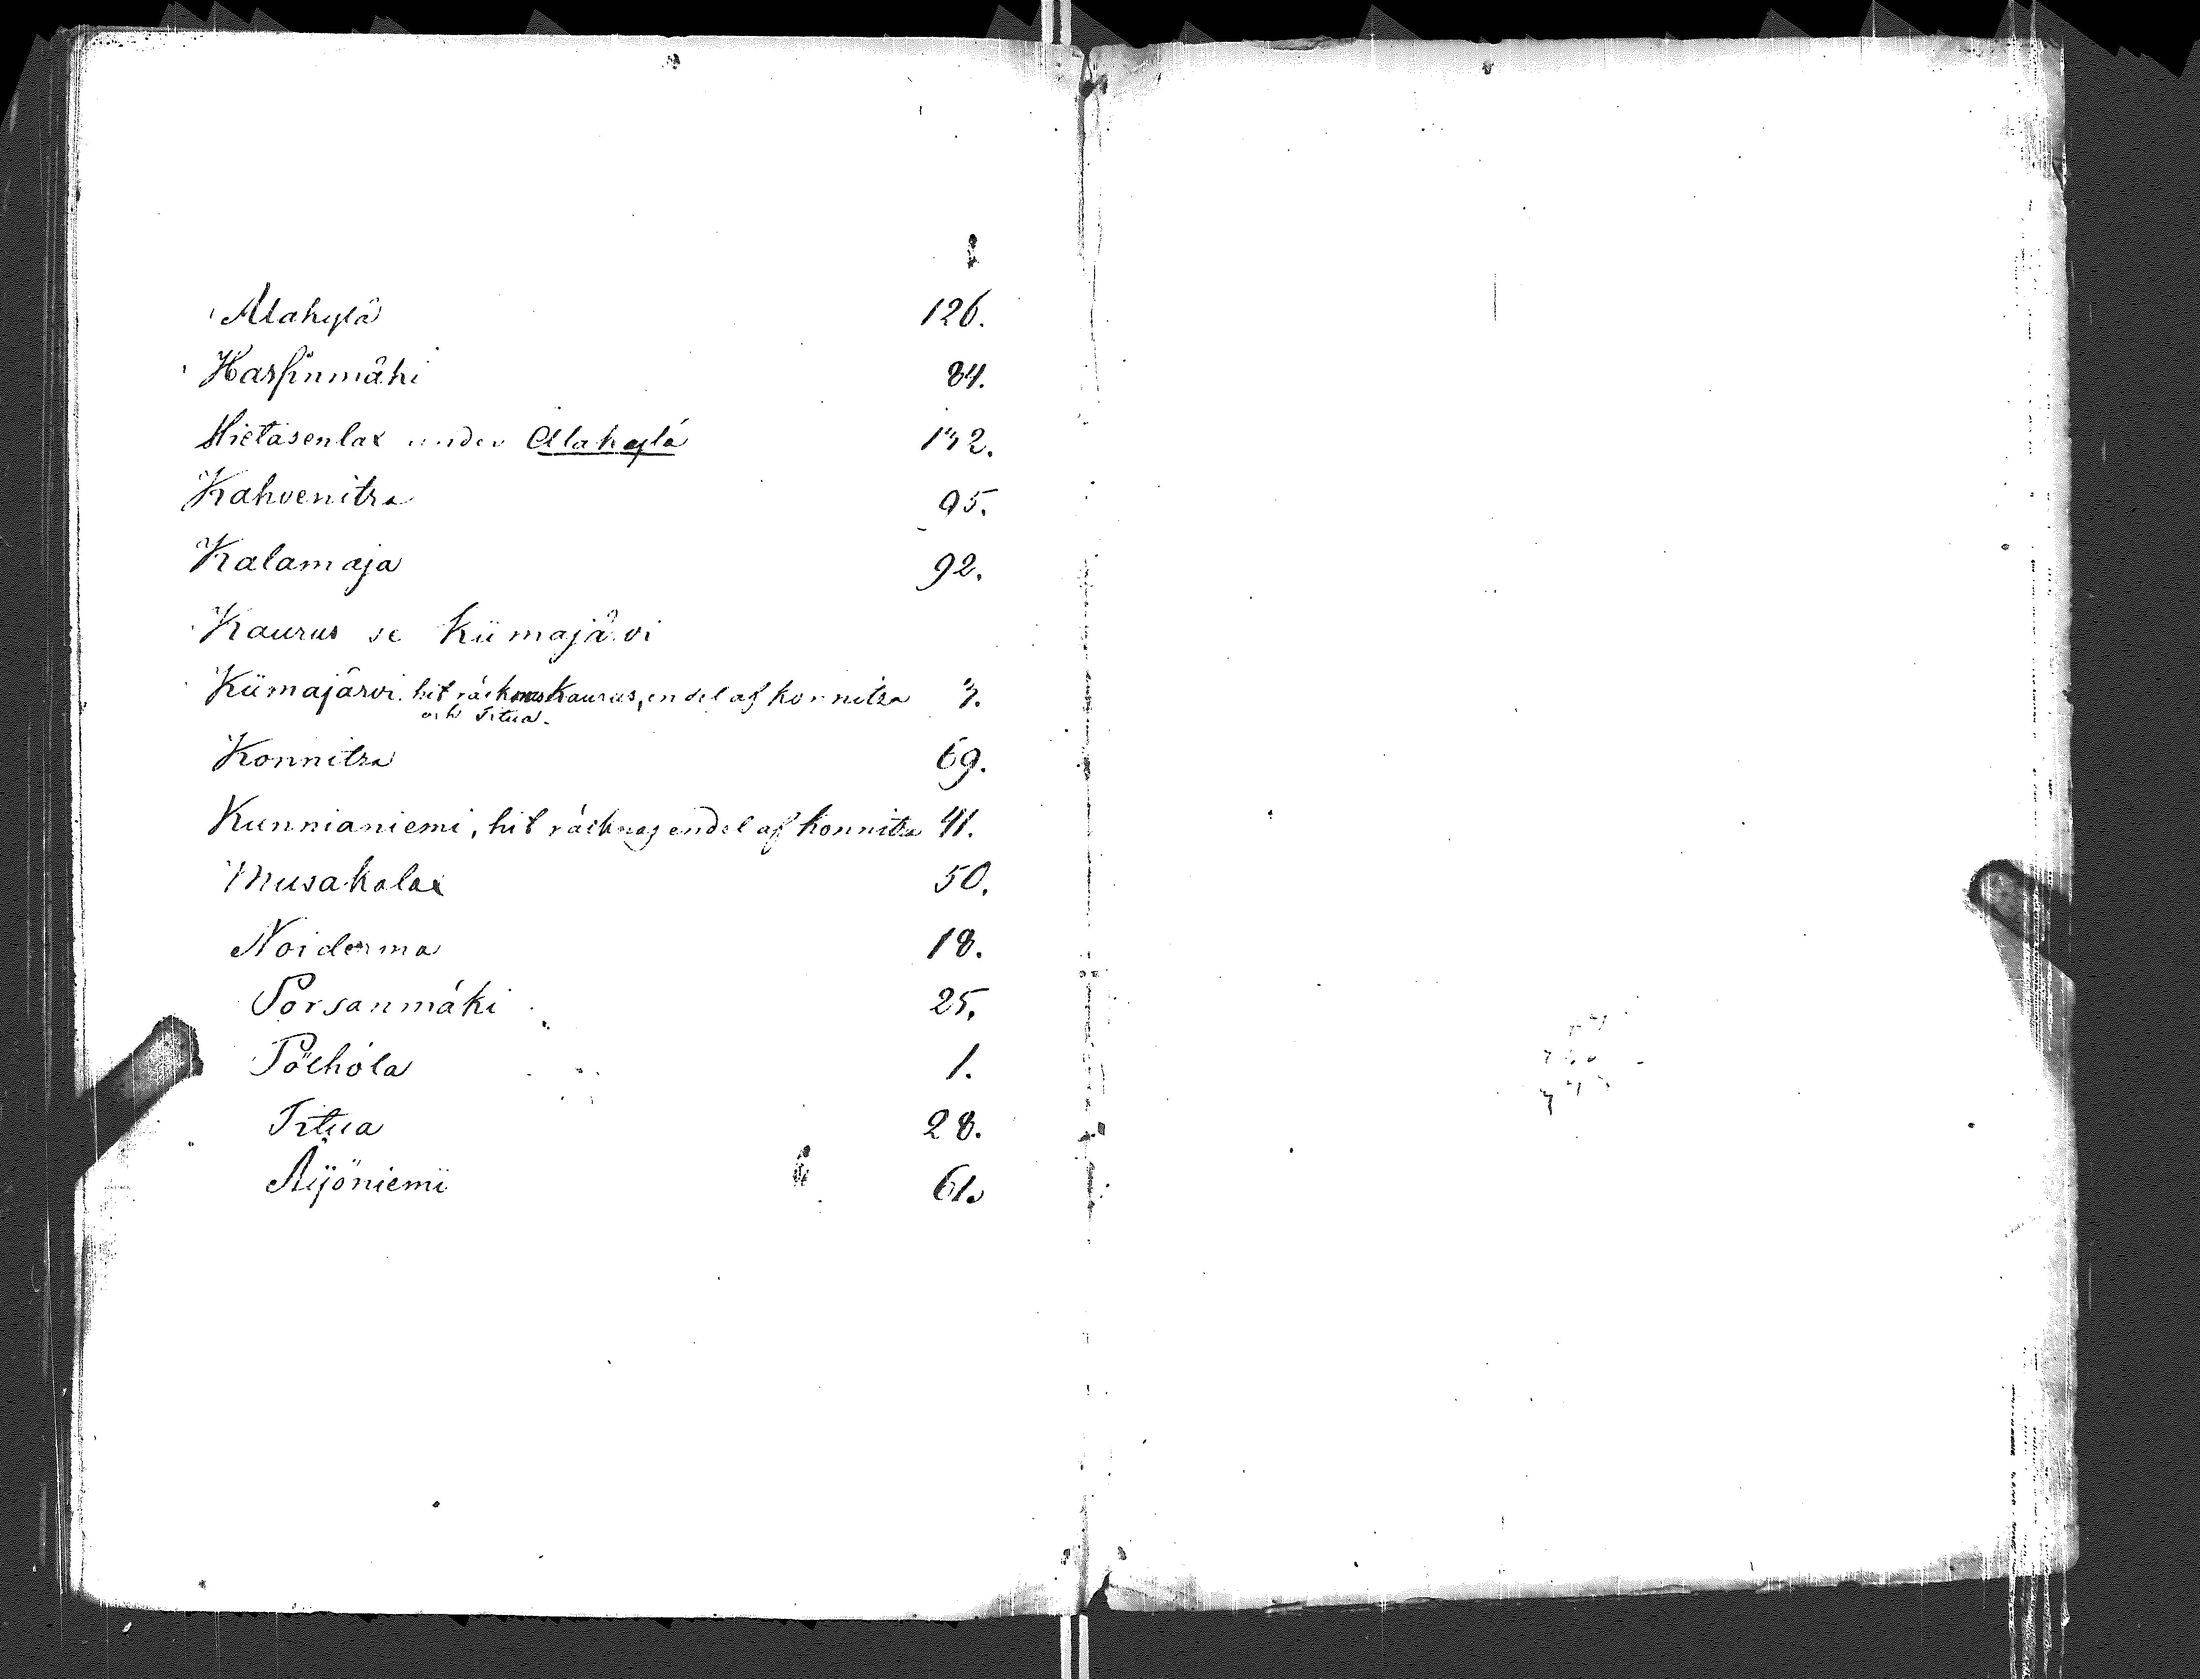 Alakylä 126.
Harsinmäki 84.
Hietasenlax under Alakylä 132.
Kahvenitsa 95.
Kalamaja 92.
Kaurus se Kiimajärvi
Kiimajärvi hit räknas Kaurus, en del af Konnitsa 7.
och Titua.
Konnitsa 69.
Kunnianiemi, hit räknas en del af Konnitsa 41.
Musakalax 50.
Noiderma 18.
Porsanmäki 25.
Pölhölä 1.
Titua 28.
Äijöniemi 61.